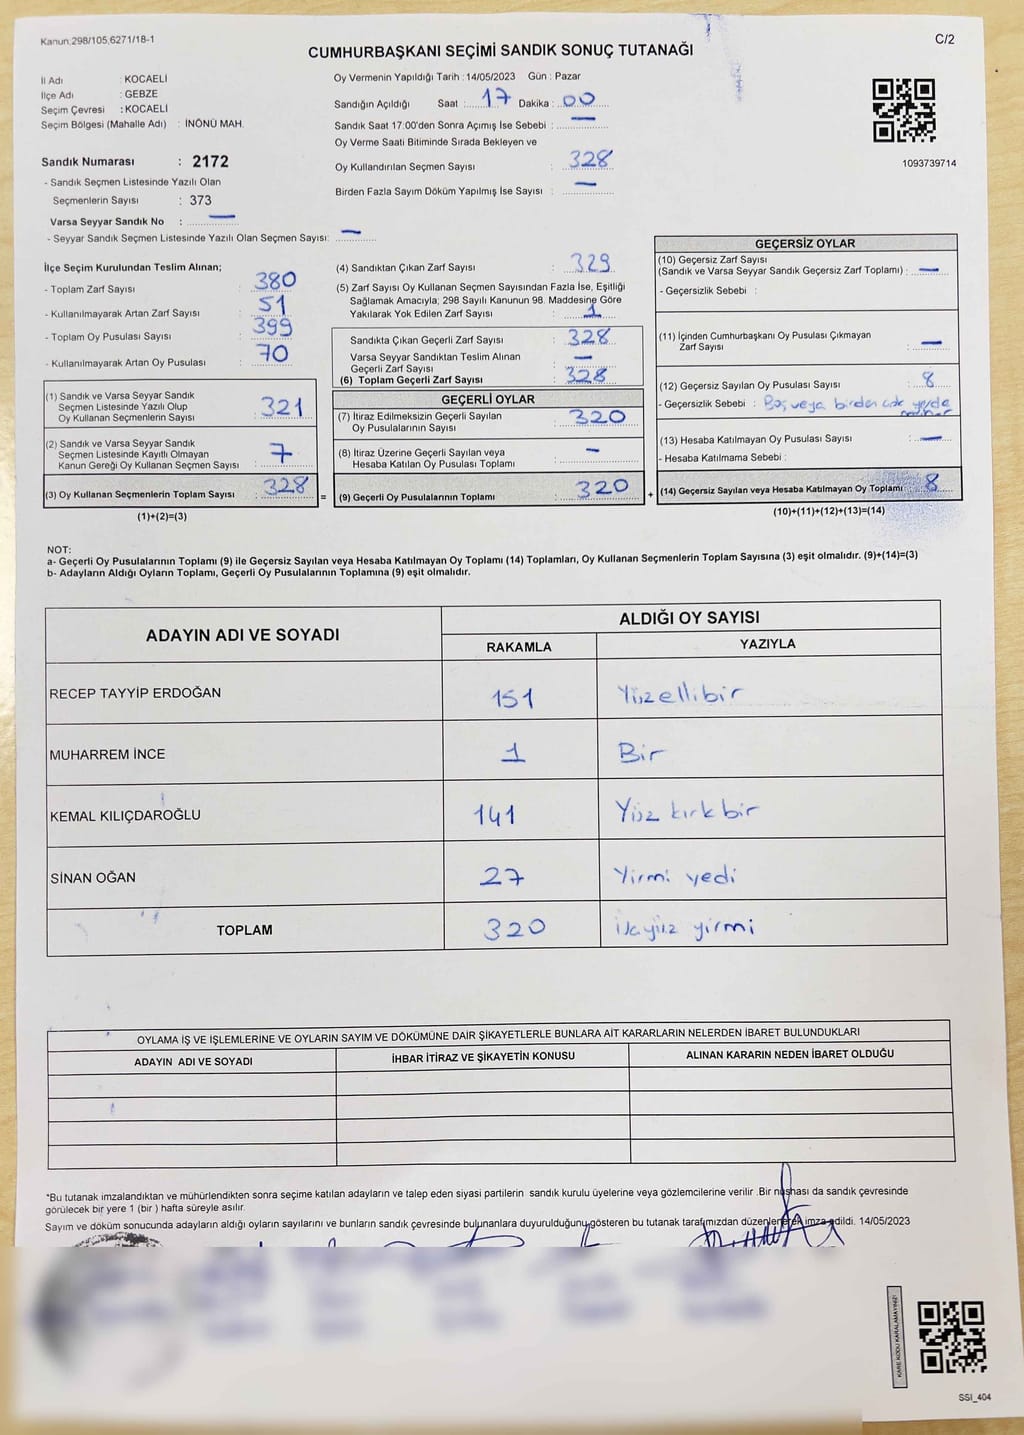 Kanun:298/105,6271/18-1
C/2
CUMHURBAŞKANI SEÇİMİ SANDIK SONUÇ TUTANAĞI
İl Adı : KOCAELİ
İlçe Adı : GEBZE
Seçim Çevresi : KOCAELİ
Seçim Bölgesi (Mahalle Adı) : İNÖNÜ MAH.
Sandık Numarası : 2172
- Sandık Seçmen Listesinde Yazılı Olan
Seçmenlerin Sayısı : 373
Varsa Seyyar Sandık No : —
- Seyyar Sandık Seçmen Listesinde Yazılı Olan Seçmen Sayısı: —
Oy Vermenin Yapıldığı Tarih : 14/05/2023 Gün : Pazar
Sandığın Açıldığı Saat : 17 Dakika : 00
Sandık Saat 17:00'den Sonra Açımış İse Sebebi : —
Oy Verme Saati Bitiminde Sırada Bekleyen ve
Oy Kullandırılan Seçmen Sayısı : 328
Birden Fazla Sayım Döküm Yapılmış İse Sayısı : —
1093739714
İlçe Seçim Kurulundan Teslim Alınan;
- Toplam Zarf Sayısı : 380
- Kullanılmayarak Artan Zarf Sayısı : 51
- Toplam Oy Pusulası Sayısı : 399
- Kullanılmayarak Artan Oy Pusulası : 70
(1) Sandık ve Varsa Seyyar Sandık
Seçmen Listesinde Yazılı Olup
Oy Kullanan Seçmenlerin Sayısı : 321
(2) Sandık ve Varsa Seyyar Sandık
Seçmen Listesinde Kayıtlı Olmayan
Kanun Gereği Oy Kullanan Seçmen Sayısı : 7
(3) Oy Kullanan Seçmenlerin Toplam Sayısı : 328 =
(1)+(2)=(3)
(4) Sandıktan Çıkan Zarf Sayısı : 329
(5) Zarf Sayısı Oy Kullanan Seçmen Sayısından Fazla İse, Eşitliği
Sağlamak Amacıyla; 298 Sayılı Kanunun 98. Maddesine Göre
Yakılarak Yok Edilen Zarf Sayısı : 1
Sandıkta Çıkan Geçerli Zarf Sayısı : 328
Varsa Seyyar Sandıktan Teslim Alınan
Geçerli Zarf Sayısı : —
(6) Toplam Geçerli Zarf Sayısı : 328
GEÇERLİ OYLAR
(7) İtiraz Edilmeksizin Geçerli Sayılan
Oy Pusulalarının Sayısı : 320
(8) İtiraz Üzerine Geçerli Sayılan veya
Hesaba Katılan Oy Pusulası Toplamı : —
(9) Geçerli Oy Pusulalarının Toplamı : 320 +
GEÇERSİZ OYLAR
(10) Geçersiz Zarf Sayısı
(Sandık ve Varsa Seyyar Sandık Geçersiz Zarf Toplamı) : —
- Geçersizlik Sebebi :
(11) İçinden Cumhurbaşkanı Oy Pusulası Çıkmayan
Zarf Sayısı : —
(12) Geçersiz Sayılan Oy Pusulası Sayısı : 8
- Geçersizlik Sebebi : Boş veya birden çok yerde
mühür
(13) Hesaba Katılmayan Oy Pusulası Sayısı : —
- Hesaba Katılmama Sebebi :
(14) Geçersiz Sayılan veya Hesaba Katılmayan Oy Toplamı : 8
(10)+(11)+(12)+(13)=(14)
NOT:
a- Geçerli Oy Pusulalarının Toplamı (9) ile Geçersiz Sayılan veya Hesaba Katılmayan Oy Toplamı (14) Toplamları, Oy Kullanan Seçmenlerin Toplam Sayısına (3) eşit olmalıdır. (9)+(14)=(3)
b- Adayların Aldığı Oyların Toplamı, Geçerli Oy Pusulalarının Toplamına (9) eşit olmalıdır.
ADAYIN ADI VE SOYADI
ALDIĞI OY SAYISI
RAKAMLA YAZIYLA
RECEP TAYYİP ERDOĞAN 151 Yüzellibir
MUHARREM İNCE 1 Bir
KEMAL KILIÇDAROĞLU 141 Yüz kırk bir
SİNAN OĞAN 27 Yirmi yedi
TOPLAM 320 İkiyüz yirmi
OYLAMA İŞ VE İŞLEMLERİNE VE OYLARIN SAYIM VE DÖKÜMÜNE DAİR ŞİKAYETLERLE BUNLARA AİT KARARLARIN NELERDEN İBARET BULUNDUKLARI
ADAYIN ADI VE SOYADI İHBAR İTİRAZ VE ŞİKAYETİN KONUSU ALINAN KARARIN NEDEN İBARET OLDUĞU
*Bu tutanak imzalandıktan ve mühürlendikten sonra seçime katılan adayların ve talep eden siyasi partilerin sandık kurulu üyelerine veya gözlemcilerine verilir .Bir nüshası da sandık çevresinde
görülecek bir yere 1 (bir ) hafta süreyle asılır.
Sayım ve döküm sonucunda adayların aldığı oyların sayılarını ve bunların sandık çevresinde bulunanlara duyurulduğunu gösteren bu tutanak tarafımızdan düzenlenerek imza edildi. 14/05/2023
KARE KODU KARALAMAYINIZ!
SSI_404